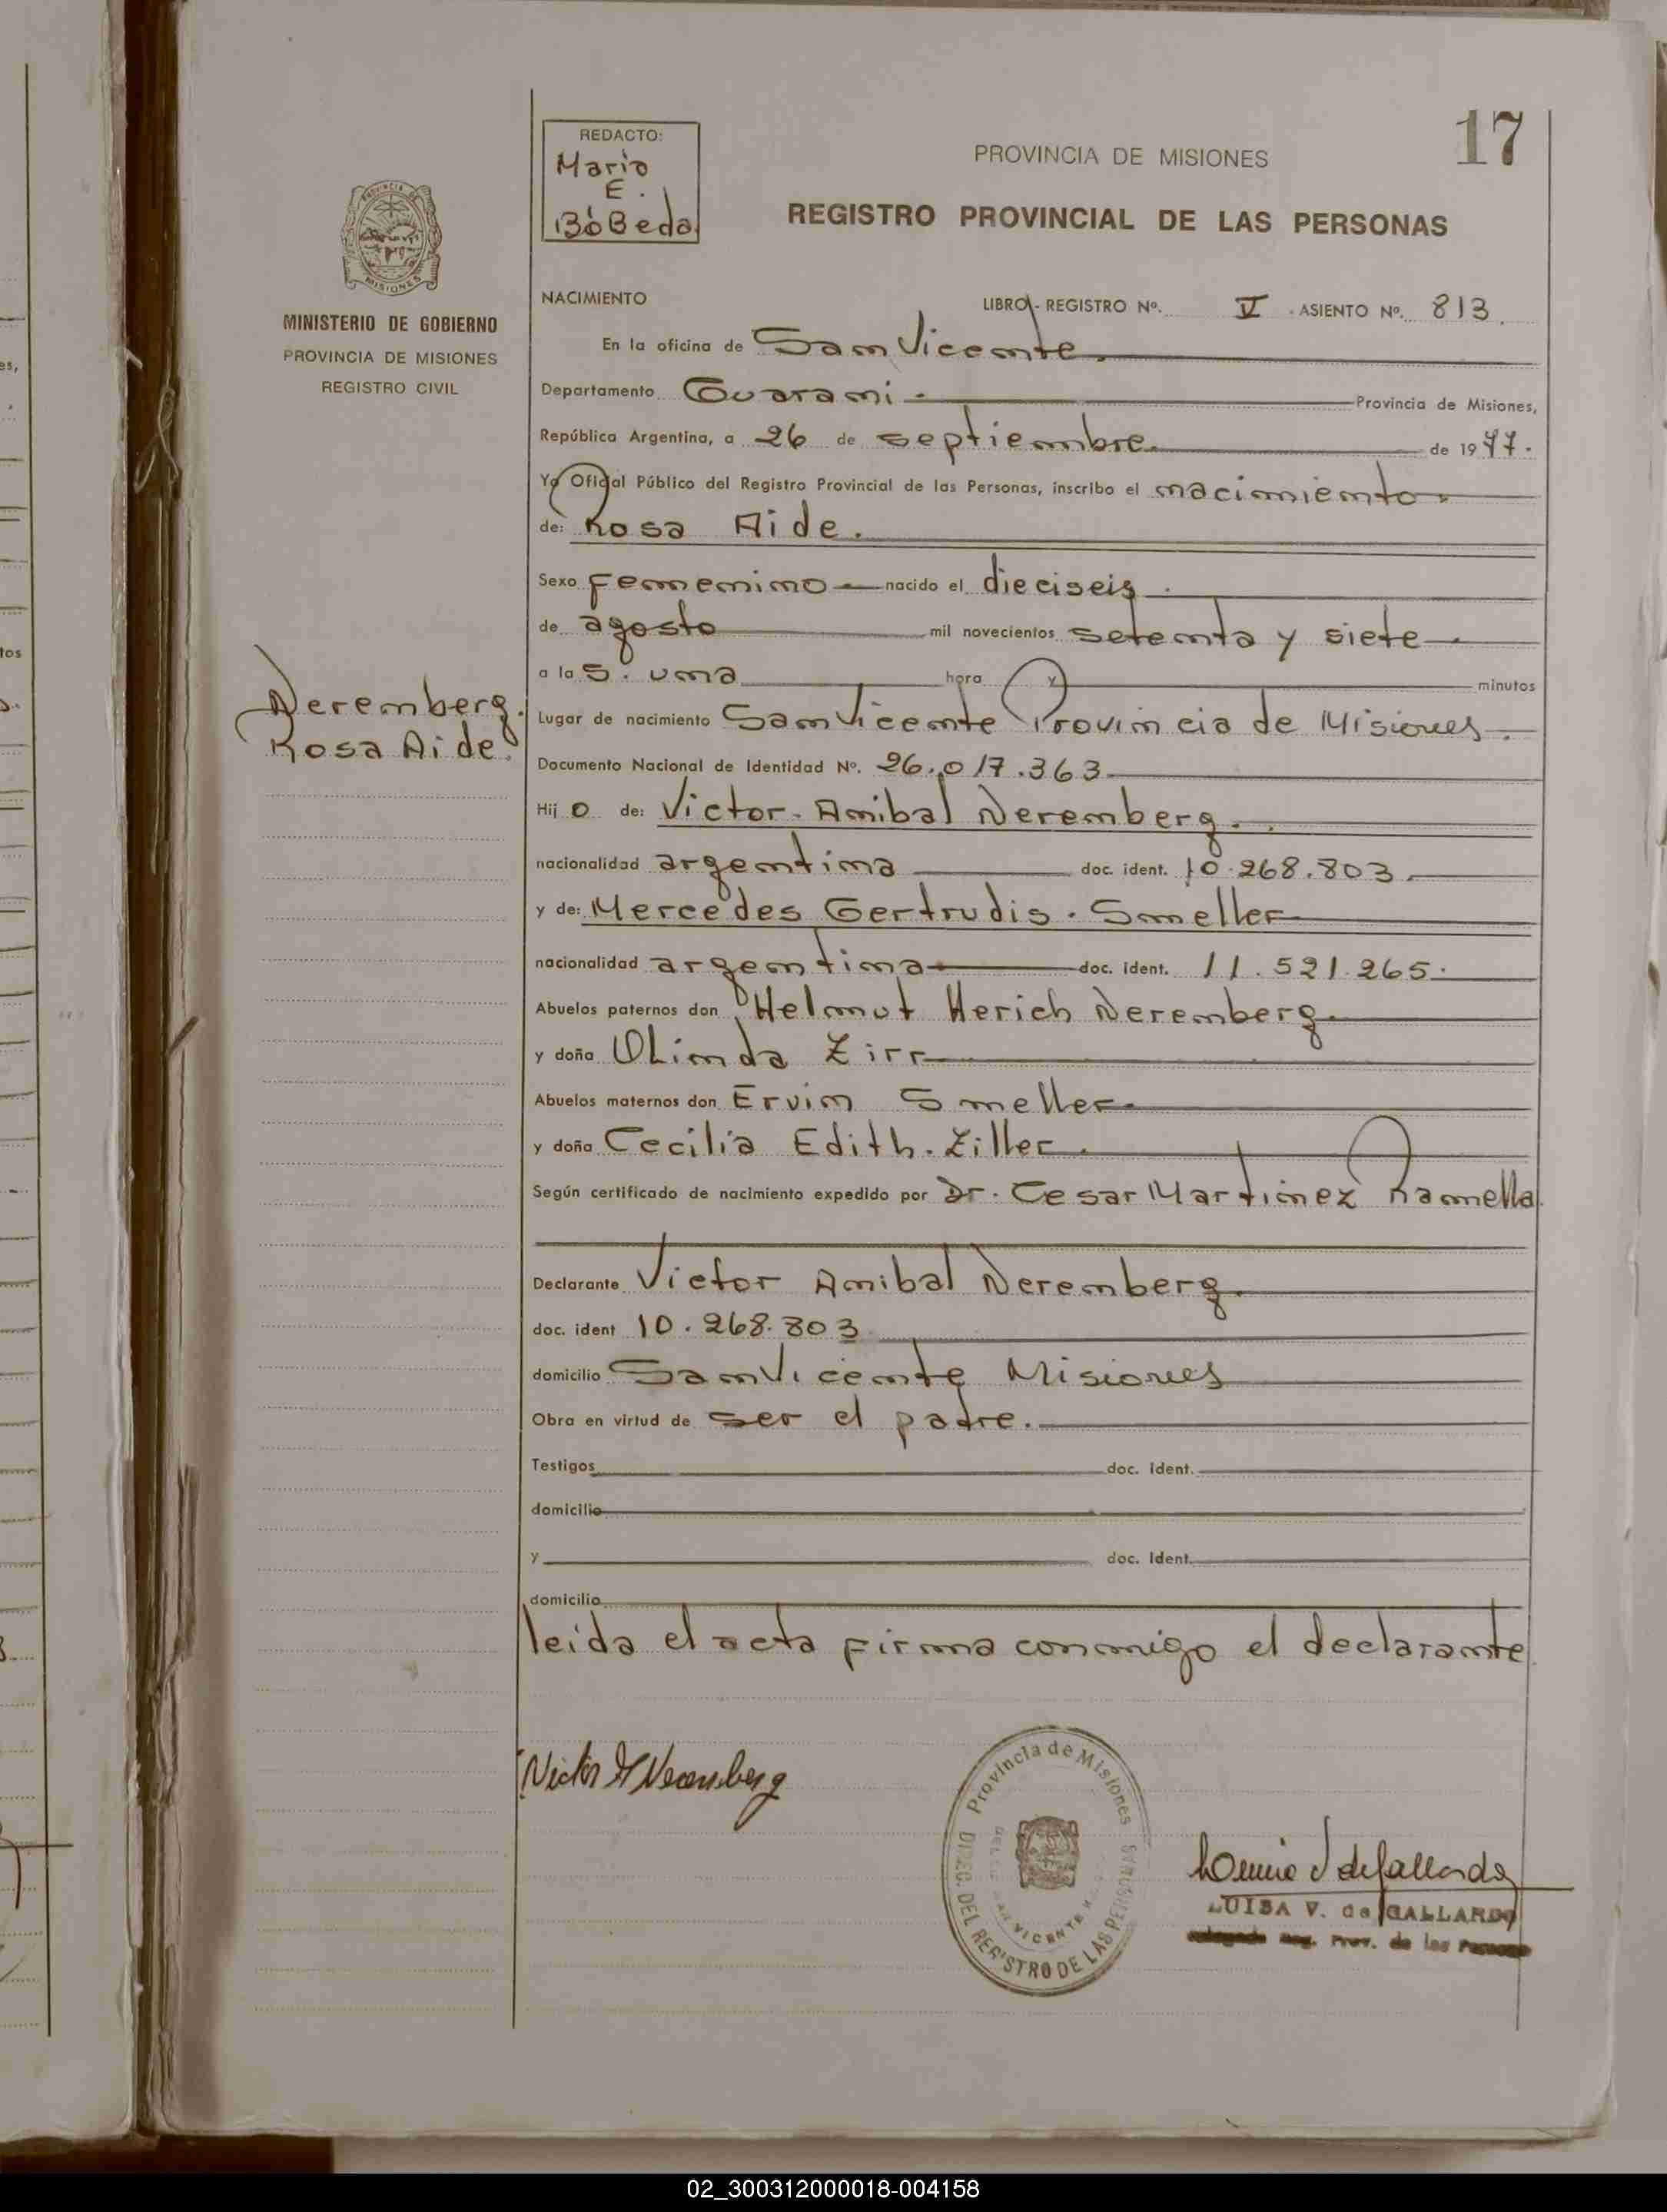 17
REDACTO:
Mario
E.
BóBeda
PROVINCIA DE MISIONES
REGISTRO PROVINCIAL DE LAS PERSONAS
MISIONES
MINISTERIO DE GOBIERNO
PROVINCIA DE MISIONES
REGISTRO CIVIL
NACIMIENTO LIBRO - REGISTRO Nº. V - ASIENTO Nº. 813.
En la oficina de San Vicente.
Departamento Guarani. Provincia de Misiones,
República Argentina, a 26 de septiembre. de 1977.
Yo Oficial Público del Registro Provincial de las Personas, inscribo el nacimiento.
de: Rosa Aide.
Sexo femenino nacido el dieciseis.
de agosto mil novecientos setenta y siete
a las. una hora y minutos
Neremberg.
Rosa Aide.
Lugar de nacimiento San Vicente Provincia de Misiones.
Documento Nacional de Identidad Nº. 26.017.363
Hijo de: Victor. Anibal Neremberg.
nacionalidad argentina doc. ident. 10.268.803.
y de: Mercedes Gertrudis. Smeller
nacionalidad argentina doc. ident. 11.521.265.
Abuelos paternos don Helmut Herich Neremberg.
y doña Olinda Zirr
Abuelos maternos don Ervin Smeller.
y doña Cecilia Edith. Ziller.
Según certificado de nacimiento expedido por Dr. Cesar Martinez Ramella.
Declarante Victor Anibal Neremberg.
doc. ident 10.268.803
domicilio San Vicente Misiones
Obra en virtud de ser el padre.
Testigos doc. ident.
domicilio
y doc. Ident.
domicilio
leida el acta firma conmigo el declarante
Victor A Neremberg
Provincia de Misiones
DIREC. DEL REGISTRO DE LAS PERSONAS
VICENTE
LUISA V. de GALLARDO
Reg. Prov. de las Personas
02_300312000018-004158